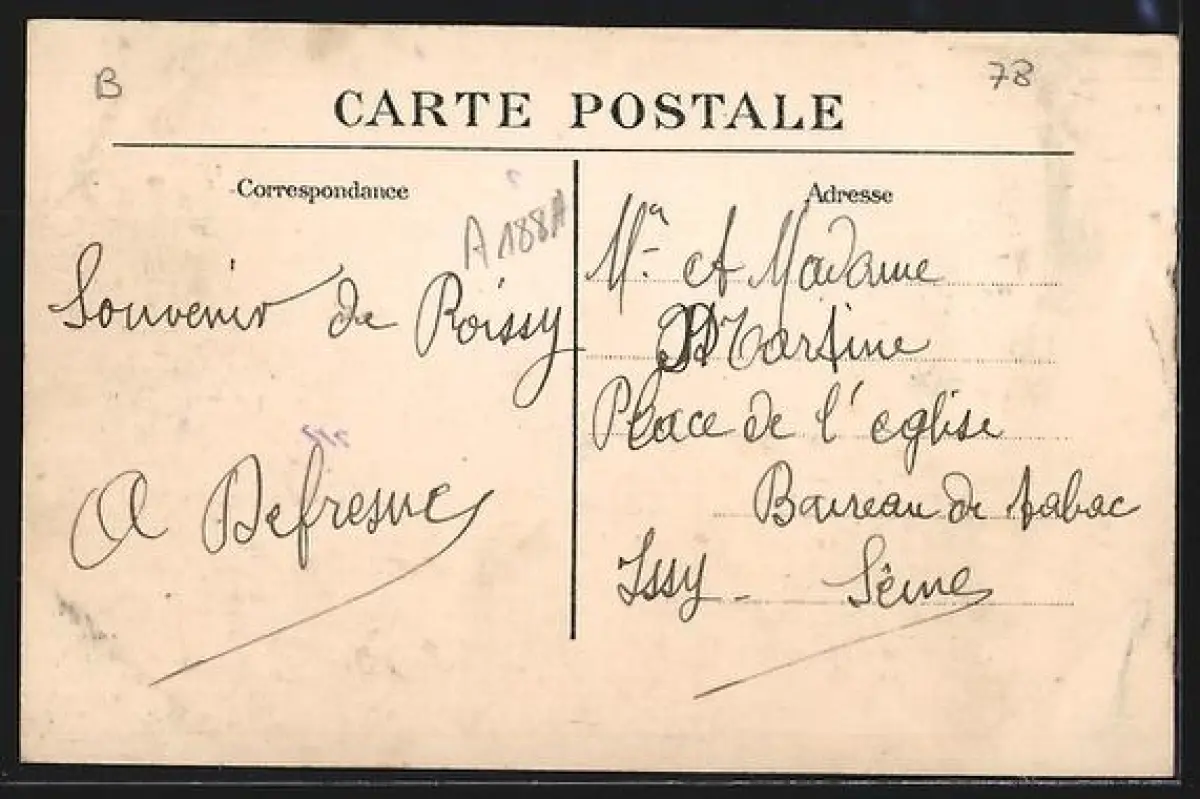 B
78
CARTE POSTALE
Correspondance
A 188A
Souvenir de Poissy
A Defresne
Adresse
Mr et Madame
Martine
Place de l'église
Baureau de tabac
Issy - Seine